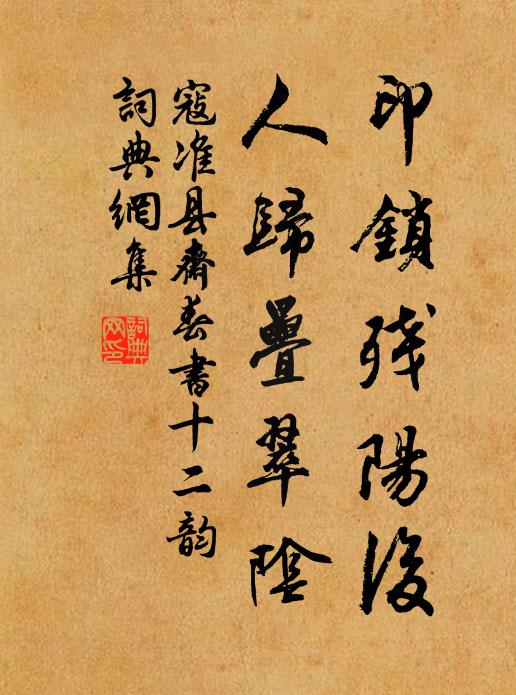 印鎖残陽後
人歸疊翠陰
寇准县齋春書十二韵
詞典網集
詞典網印